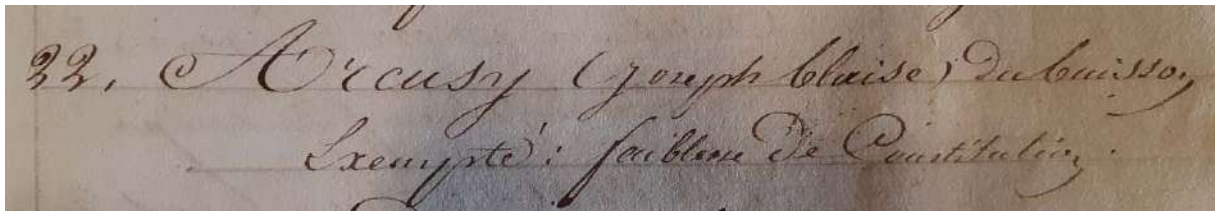 22, Arcusy (joseph blaise) du buisson
Exempté : faiblesse de Constitution.